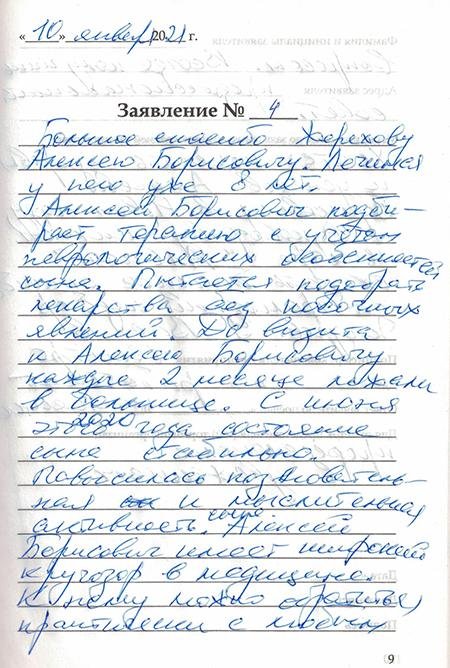 «10» январ 2021 г.
Заявление № 4
Большое спасибо Жерехову
Алексею Борисовичу. Лечимся
у него уже 8 лет.
Алексей Борисович подби-
рает терапию с учётом
неврологических особенностей
сына. Пытается подобрать
лекарства без побочных
явлений. До визита
к Алексею Борисовичу
каждые 2 месяца лежали
в больнице. С июня
этого 2020 года состояние
сына стабильно.
Повысилась познователь-
ная и мыслительная
активность сына. Алексей
Борисович имеет широкий
кругозор в медицине.
К нему можно обратиться
практически с любым
9